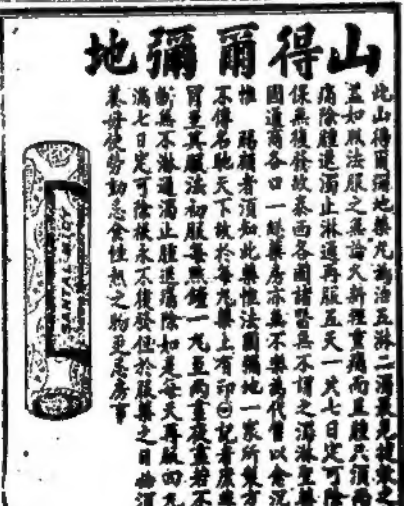 山得爾彌地
此山得爾彌地藥丸為治五淋二濁最見捷效之
藥如照法服之無論久新輕重痛而且腫只須兩
痛除腫退濁止淋通再服五天一共七日定可除
保無復發故泰西各國諸醫無不謂之濁淋聖藥
國通商各口一經藥房亦無不樂為代售以余況
惟 賜顧者須知此藥惟法國彌地一家所製方
不傳名馳天下故於每丸藥上有印 記者庶無
胃其服法初服每點鐘一丸至兩晝夜盡若不
斷無不淋通濁止腫退痛除如是每天再服四丸
滿七日定可除根永不復發但於服藥之日必須
養身使勞動忌食性熱之物更忌房事
SANTAL MIDY